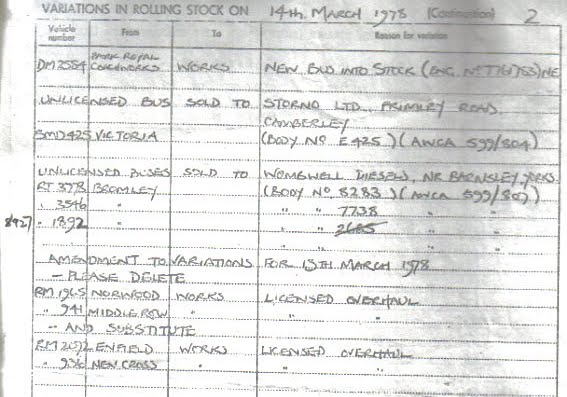 VARIATIONS IN ROLLING STOCK ON 14th. MARCH 1978 (Continuation) 2
Vehicle number From To Reason for variation
PARK ROYAL
DM 2584 COACHWORKS WORKS NEW BUS INTO STOCK (ENG. Nº T761753) NE
UNLICENSED BUS SOLD TO STORNO LTD., FRIMLEY ROAD,
CAMBERLEY
SMD 425 VICTORIA (BODY Nº E425) (AWCA 599/804)
UNLICENSED BUSES SOLD TO WOMBWELL DIESELS, NR BARNSLEY, YORKS.
RT 3778 BROMLEY (BODY Nº 8283) (AWCA 599/807)
" 3546 " " " 7738 " "
8927 " 1892 " " " 2665 " "
AMENDMENT TO VARIATIONS FOR 13TH MARCH 1978
– PLEASE DELETE
RM 1965 NORWOOD WORKS LICENSED OVERHAUL
" 941 MIDDLE ROW " " "
– AND SUBSTITUTE
RM 2092 ENFIELD WORKS LICENSED OVERHAUL
" 936 NEW CROSS " " "